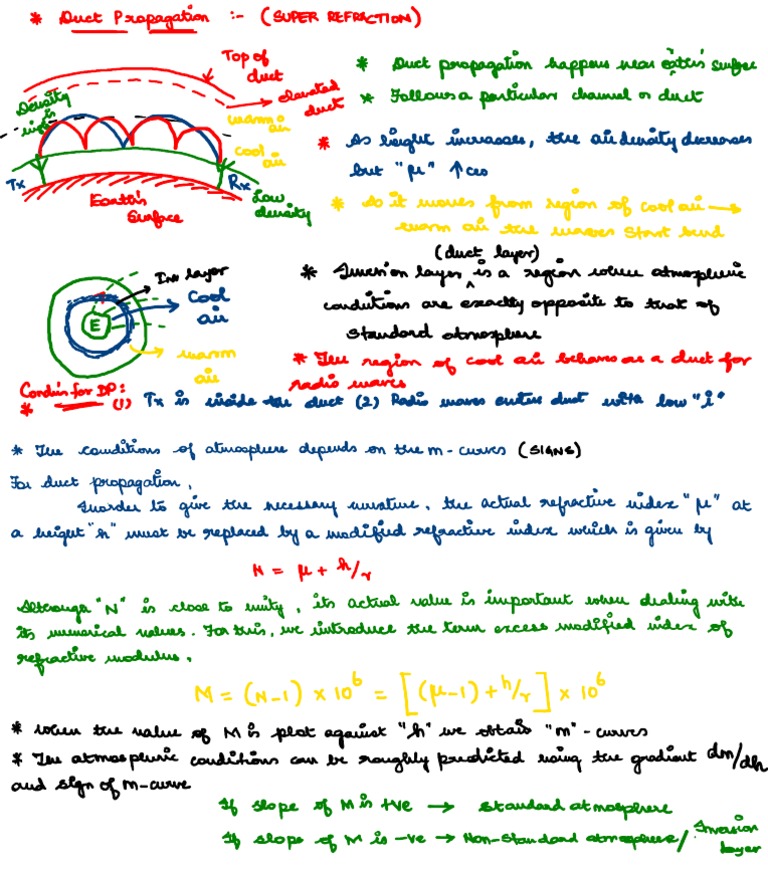 * Duct Propagation :- (SUPER REFRACTION)
Top of duct
elevated duct
Density high
warm air
cool air
Tx
Rx
Earth's Surface
Low density
* Duct propagation happens near Earth's surface
* Follows a particular channel or duct
* As height increases, the air density decreases
but "μ" ↑ces
* As it moves from region of cool air →
warm air the waves start bend
Inv layer
Cool air
E
warm air
(duct layer)
* Inversion layer ^ is a region where atmospheric
conditions are exactly opposite to that of
standard atmosphere
* The region of cool air behaves as a duct for
radio waves
Condns for DP:
* (1) Tx is inside the duct (2) Radio waves enters duct with low "i"
* The conditions of atmosphere depends on the m-curves (SIGNS)
For duct propagation,
Inorder to give the necessary curvature, the actual refractive index "μ" at
a height "h" must be replaced by a modified refractive index which is given by
N = μ + h/r
Although "N" is close to unity, its actual value is important when dealing with
its numerical values. For this, we introduce the term excess modified index of
refractive modulus,
M = (N-1) × 10⁶ = [(μ-1) + h/r] × 10⁶
* When the value of M is plot against "h" we obtain "m"-curves
* The atmospheric conditions can be roughly predicted using the gradient dm/dh
and sign of m-curve
If slope of M is +ve → standard atmosphere
If slope of M is -ve → Non-standard atmosphere/Invasion layer